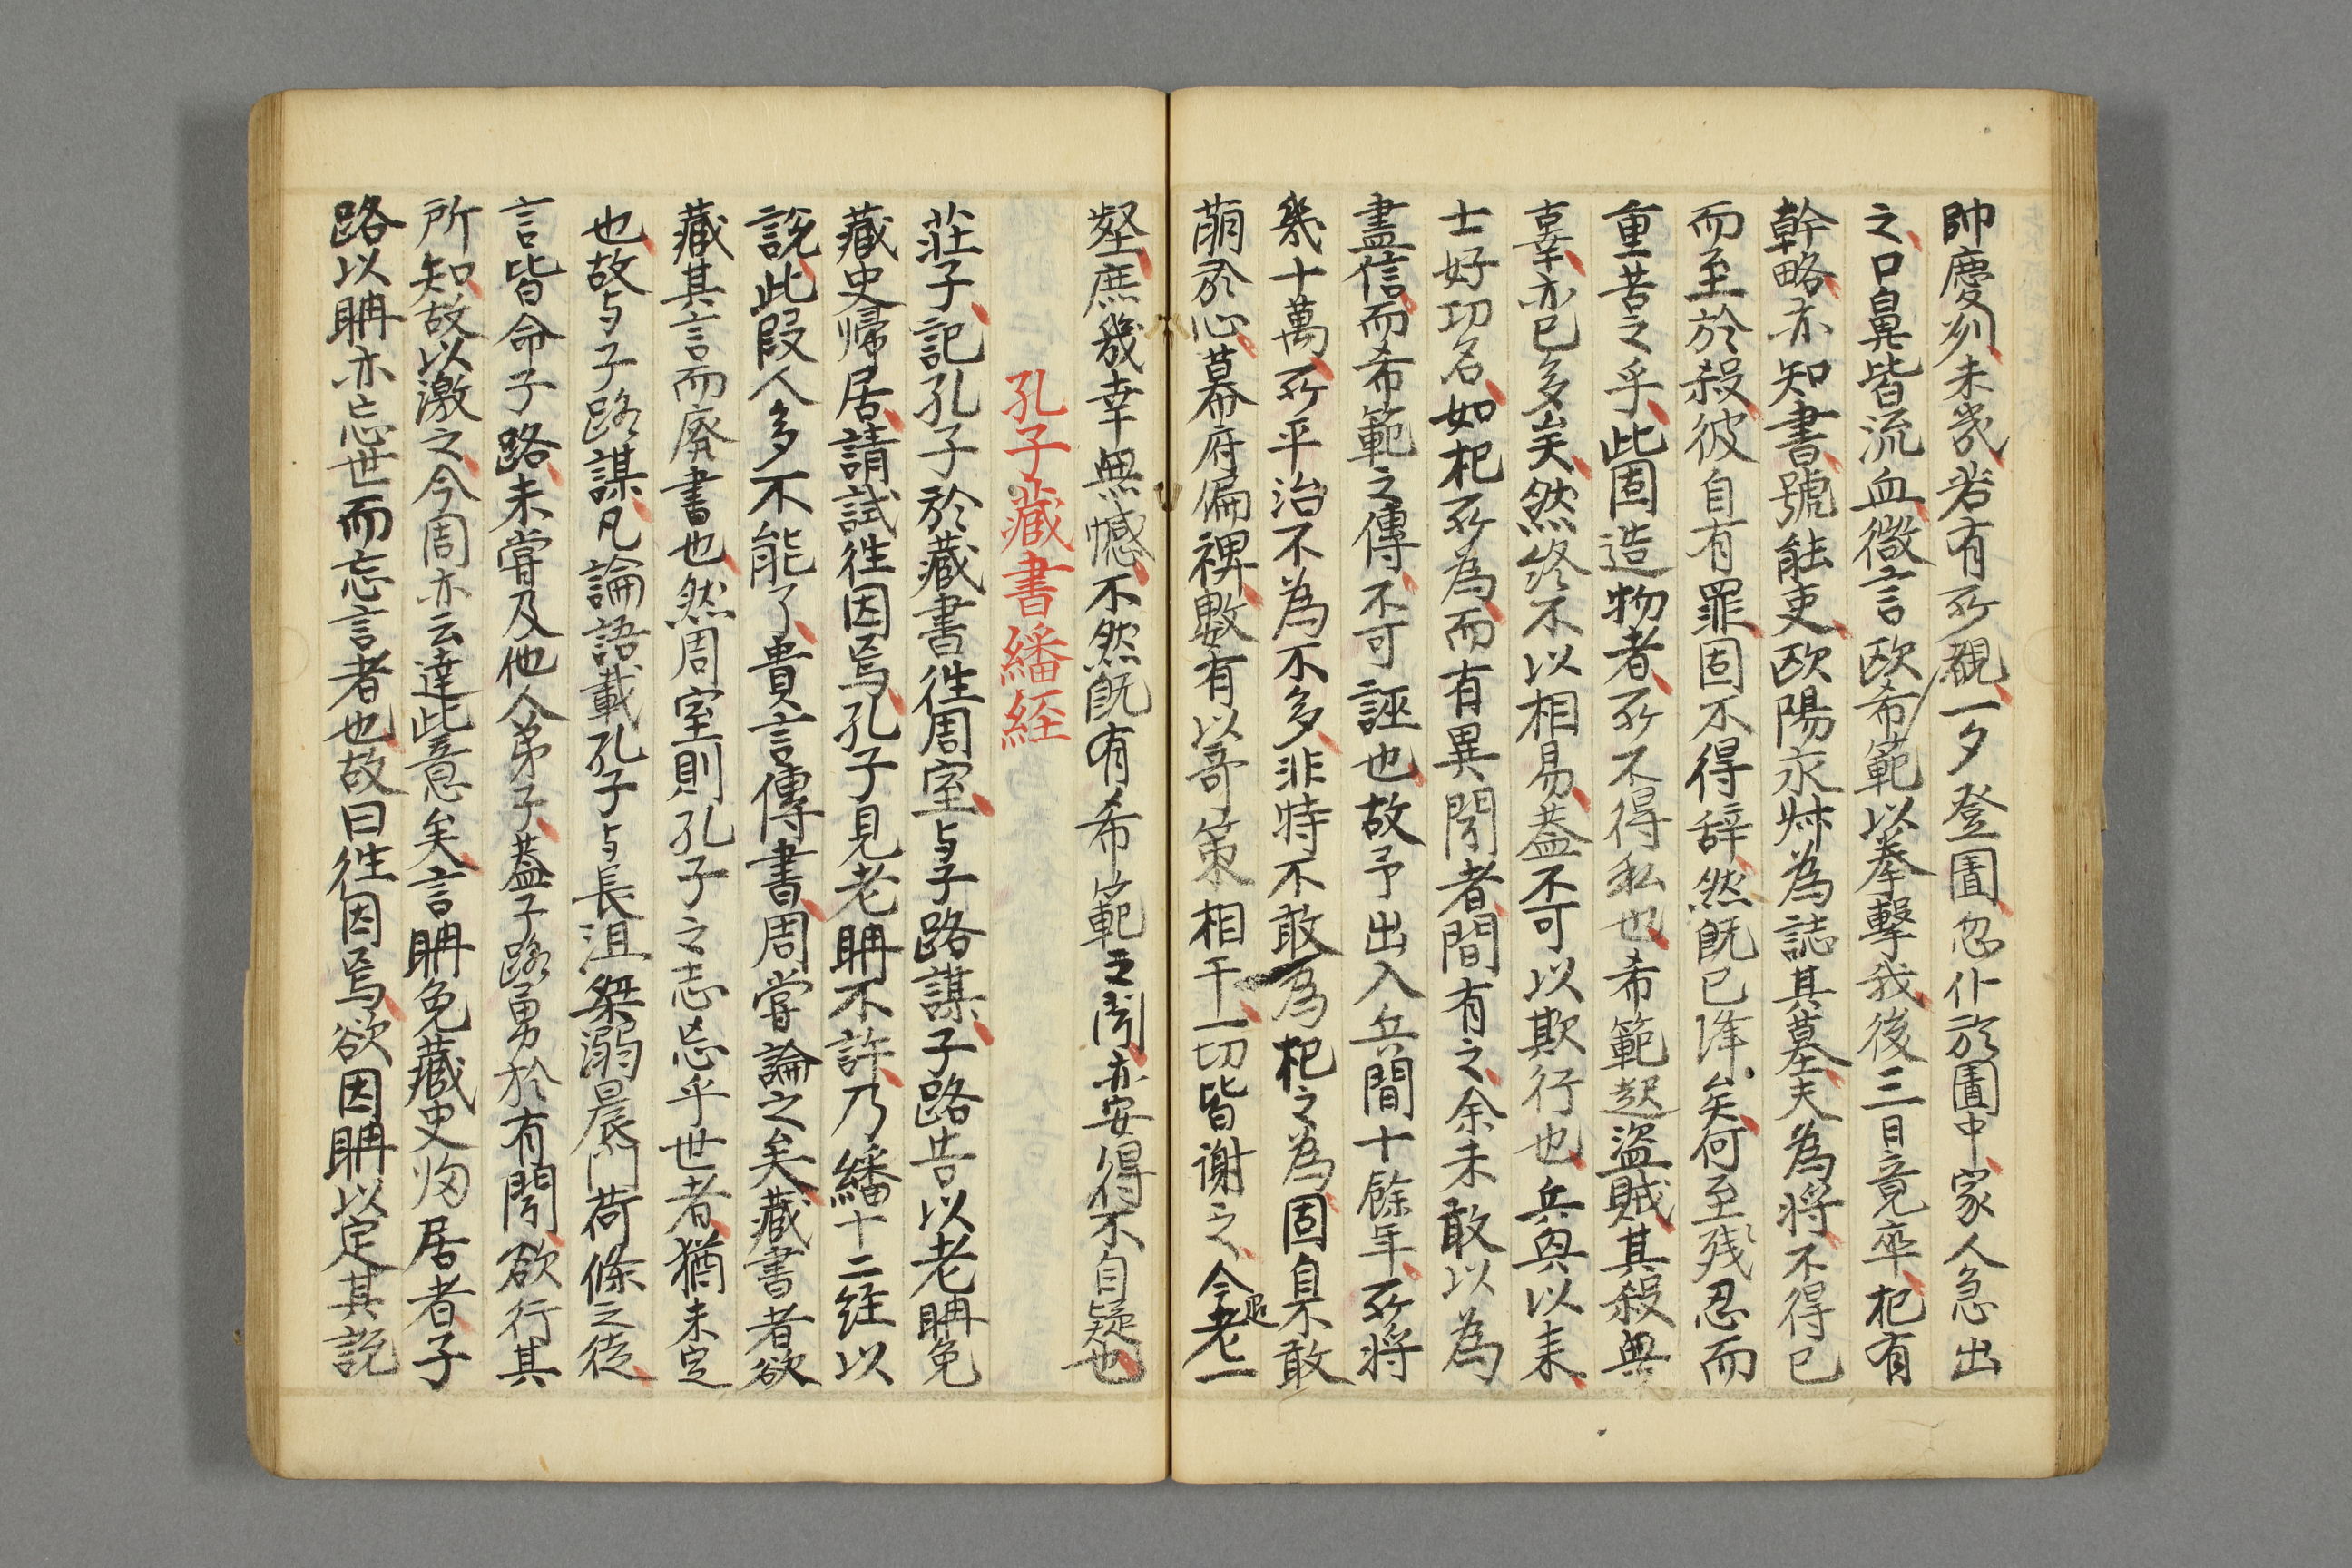 帥慶州未幾若有所覩一夕登圊忽仆於圊中家人急出
之口鼻皆流血微言欧希範以拳擊我後三日竟卒杞有
幹略亦知書號能吏欧陽永叔為誌其墓夫為将不得已
而至於殺彼自有罪固不得辞然既已降矣何至残忍而
重苦之乎此固造物者所不得私也希範起盗賊其殺無
辜亦已多矣然終不以相易盖不可以欺行也兵興以来
士好功名如杞所為而有異聞者間有之余未敢以為
盡信而希範之傳不可誣也故予出入兵間十餘年所将
幾十萬所平治不為不多非特不敢為杞之為固臬不敢
萌於心幕府偏裨數有以奇策相干一切皆謝之今退老一
壑庶幾幸無憾不然既有希範之聞亦安得不自疑也
孔子藏書繙経
荘子記孔子於藏書徃周室与子路謀子路告以老聃免
藏史帰居請試徃因焉孔子見老聃不許乃繙十二経以
說此段人多不能了貴言傳書周嘗論之矣藏書者欲
藏其言而廢書也然周室則孔子之志忘乎世者猶未定
也故与子路謀凡論語載孔子与長沮桀溺晨門荷條之徒
言皆命子路未嘗及他人弟子盖子路勇於有聞欲行其
所知故以激之今周亦云達此意矣言聃免藏史㱕居者子
路以聃亦忘世而忘言者也故曰徃因焉欲因聃以定其説